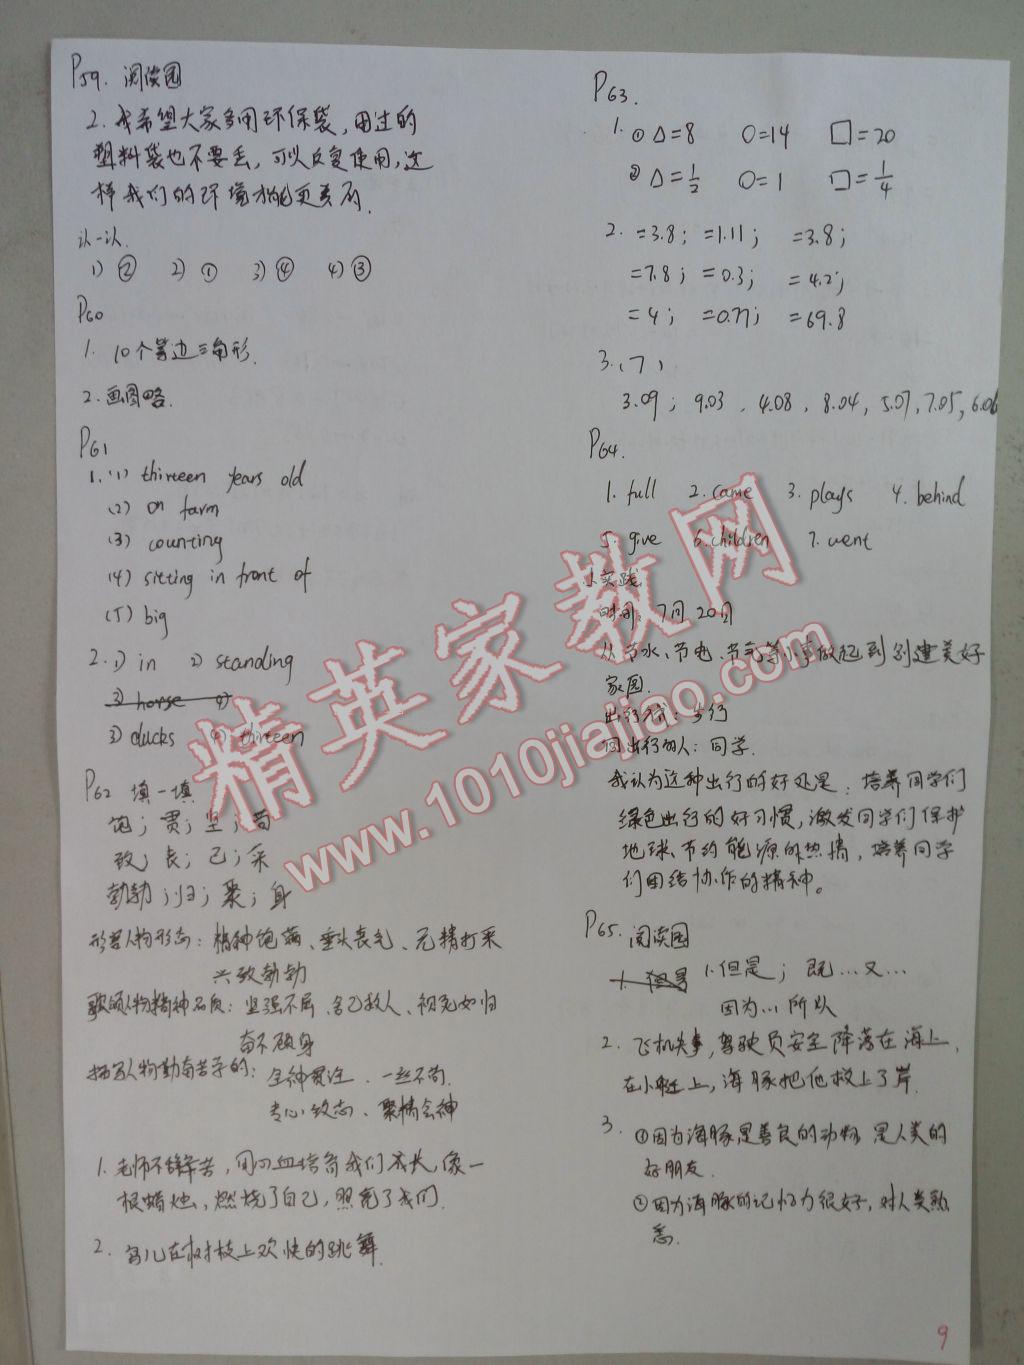 P59. 阅读园
2. 我希望大家多用环保袋,用过的
塑料袋也不要丢,可以反复使用,这
样我们的环境才能更美好.
认一认.
1) ② 2) ① 3) ④ 4) ③
P60
1. 10个等边三角形.
2. 画图略.
P61
1. (1) thirteen years old
(2) on farm
(3) counting
(4) sitting in front of
(5) big
2. 1) in 2) standing
3) horse 4)
3) ducks 4) thirteen
P62 填一填
饱; 贯; 坚; 苟
致; 丧; 己; 采
勃勃; 归; 聚; 身
形容人物形态: 精神饱满、垂头丧气、无精打采
兴致勃勃
歌颂人物精神品质: 坚强不屈、舍己救人、视死如归
奋不顾身
描写人物勤奋苦学的: 全神贯注、一丝不苟.
专心致志、聚精会神
1. 老师不辞辛苦,用心血培育我们成长,像一
根蜡烛,燃烧了自己,照亮了我们.
2. 鸟儿在树枝上欢快的跳舞.
P63.
1. ① △=8 ○=14 □=20
② △=1/2 ○=1 □=1/4
2. =3.8; =1.11; =3.8;
=7.8; =0.3; =4.2;
=4; =0.77; =69.8
3. (7)
3.09; 9.03, 4.08, 8.04, 5.07, 7.05, 6.06
P64.
1. full 2. came 3. plays 4. behind
5. give 6. children 7. went
小实践
时间: 7月20日
从节水、节电、节气等小事做起到创建美好
家园.
出行方式: 步行
同出行的人: 同学.
我认为这种出行的好处是: 培养同学们
绿色出行的好习惯,激发同学们保护
地球、节约能源的热情,培养同学
们团结协作的精神。
P65. 阅读园
1. 但是; 既…又…
因为… 所以
2. 飞机失事,驾驶员安全降落在海上,
在小艇上,海豚把他救上了岸.
3. ①因为海豚是善良的动物,是人类的
好朋友.
②因为海豚的记忆力很好,对人类熟
悉.
9
精英家教网
www.1010jiajiao.com